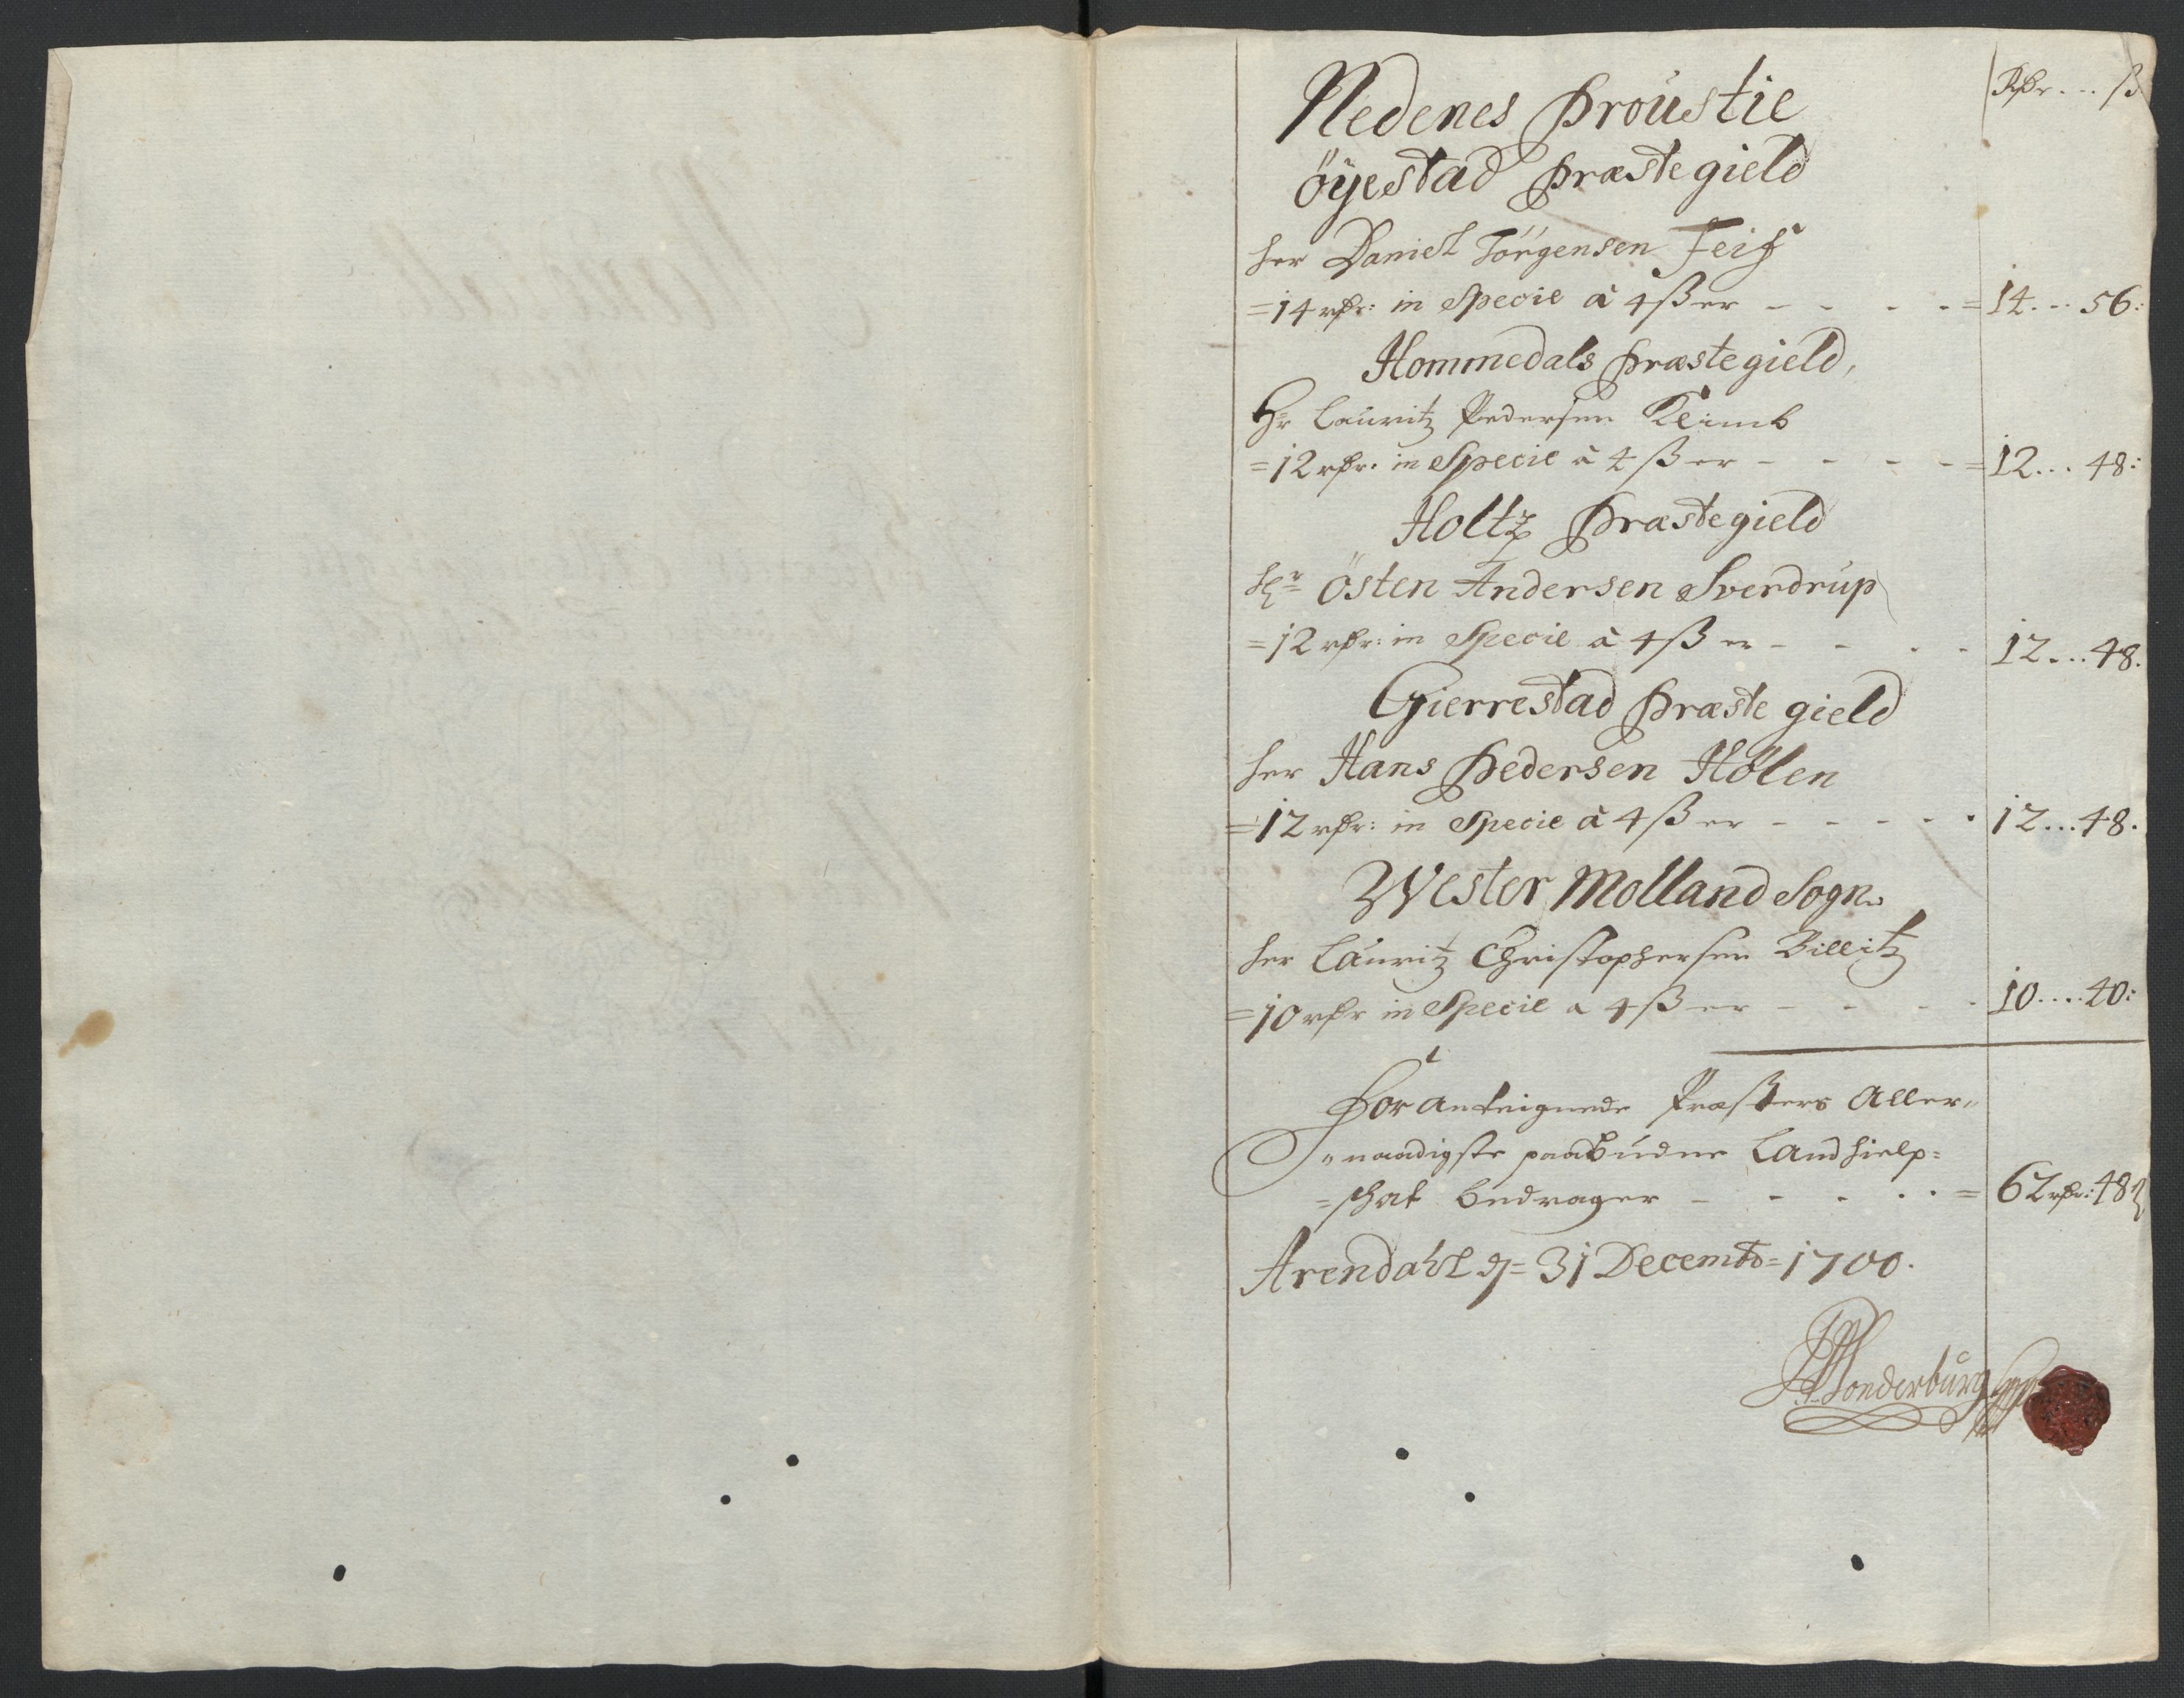 Nedenes Proustie
Rdr --- ß
öyestad Præstegield
her Daniel Jörgensen Feif
=14 rdr: in Specie à 4 ß er - - - - = 14 --- 56:
Hommedals Præstegield,
Hr Lauritz Pedersen Kleimb
=12 rdr: in Specie à 4 ß er - - - - = 12 --- 48:
Holtz Præstegield
Hr Östen Andersen Sverdrup
=12 rdr: in Specie à 4 ß er - - - - 12 --- 48.
Gierrestad Præste gield
her Hans Pedersen Hölen
=12 rdr: in Specie à 4 ß er - - - - - 12 --- 48.
Wester Molland Sogn.
her Lauritz Christophersen Billitz
=10 rdr in Specie a 4 ß er - - - - 10 ---- 40:
For anteignede Præsters Aller„
„naadigste paabudne Landhielp=
=schat bedrager - - - - - = 62 rdr: 48 ß
Arendahl d= 31 Decembr= 1700.
Sonderburg